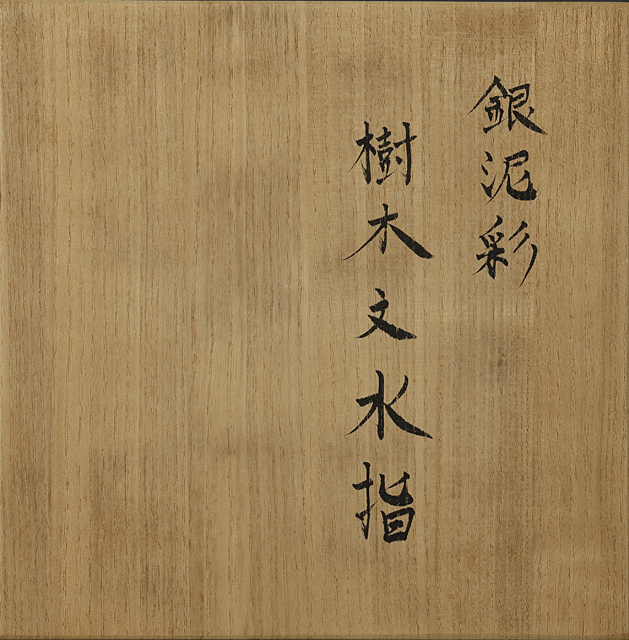 銀泥彩
樹木文水指